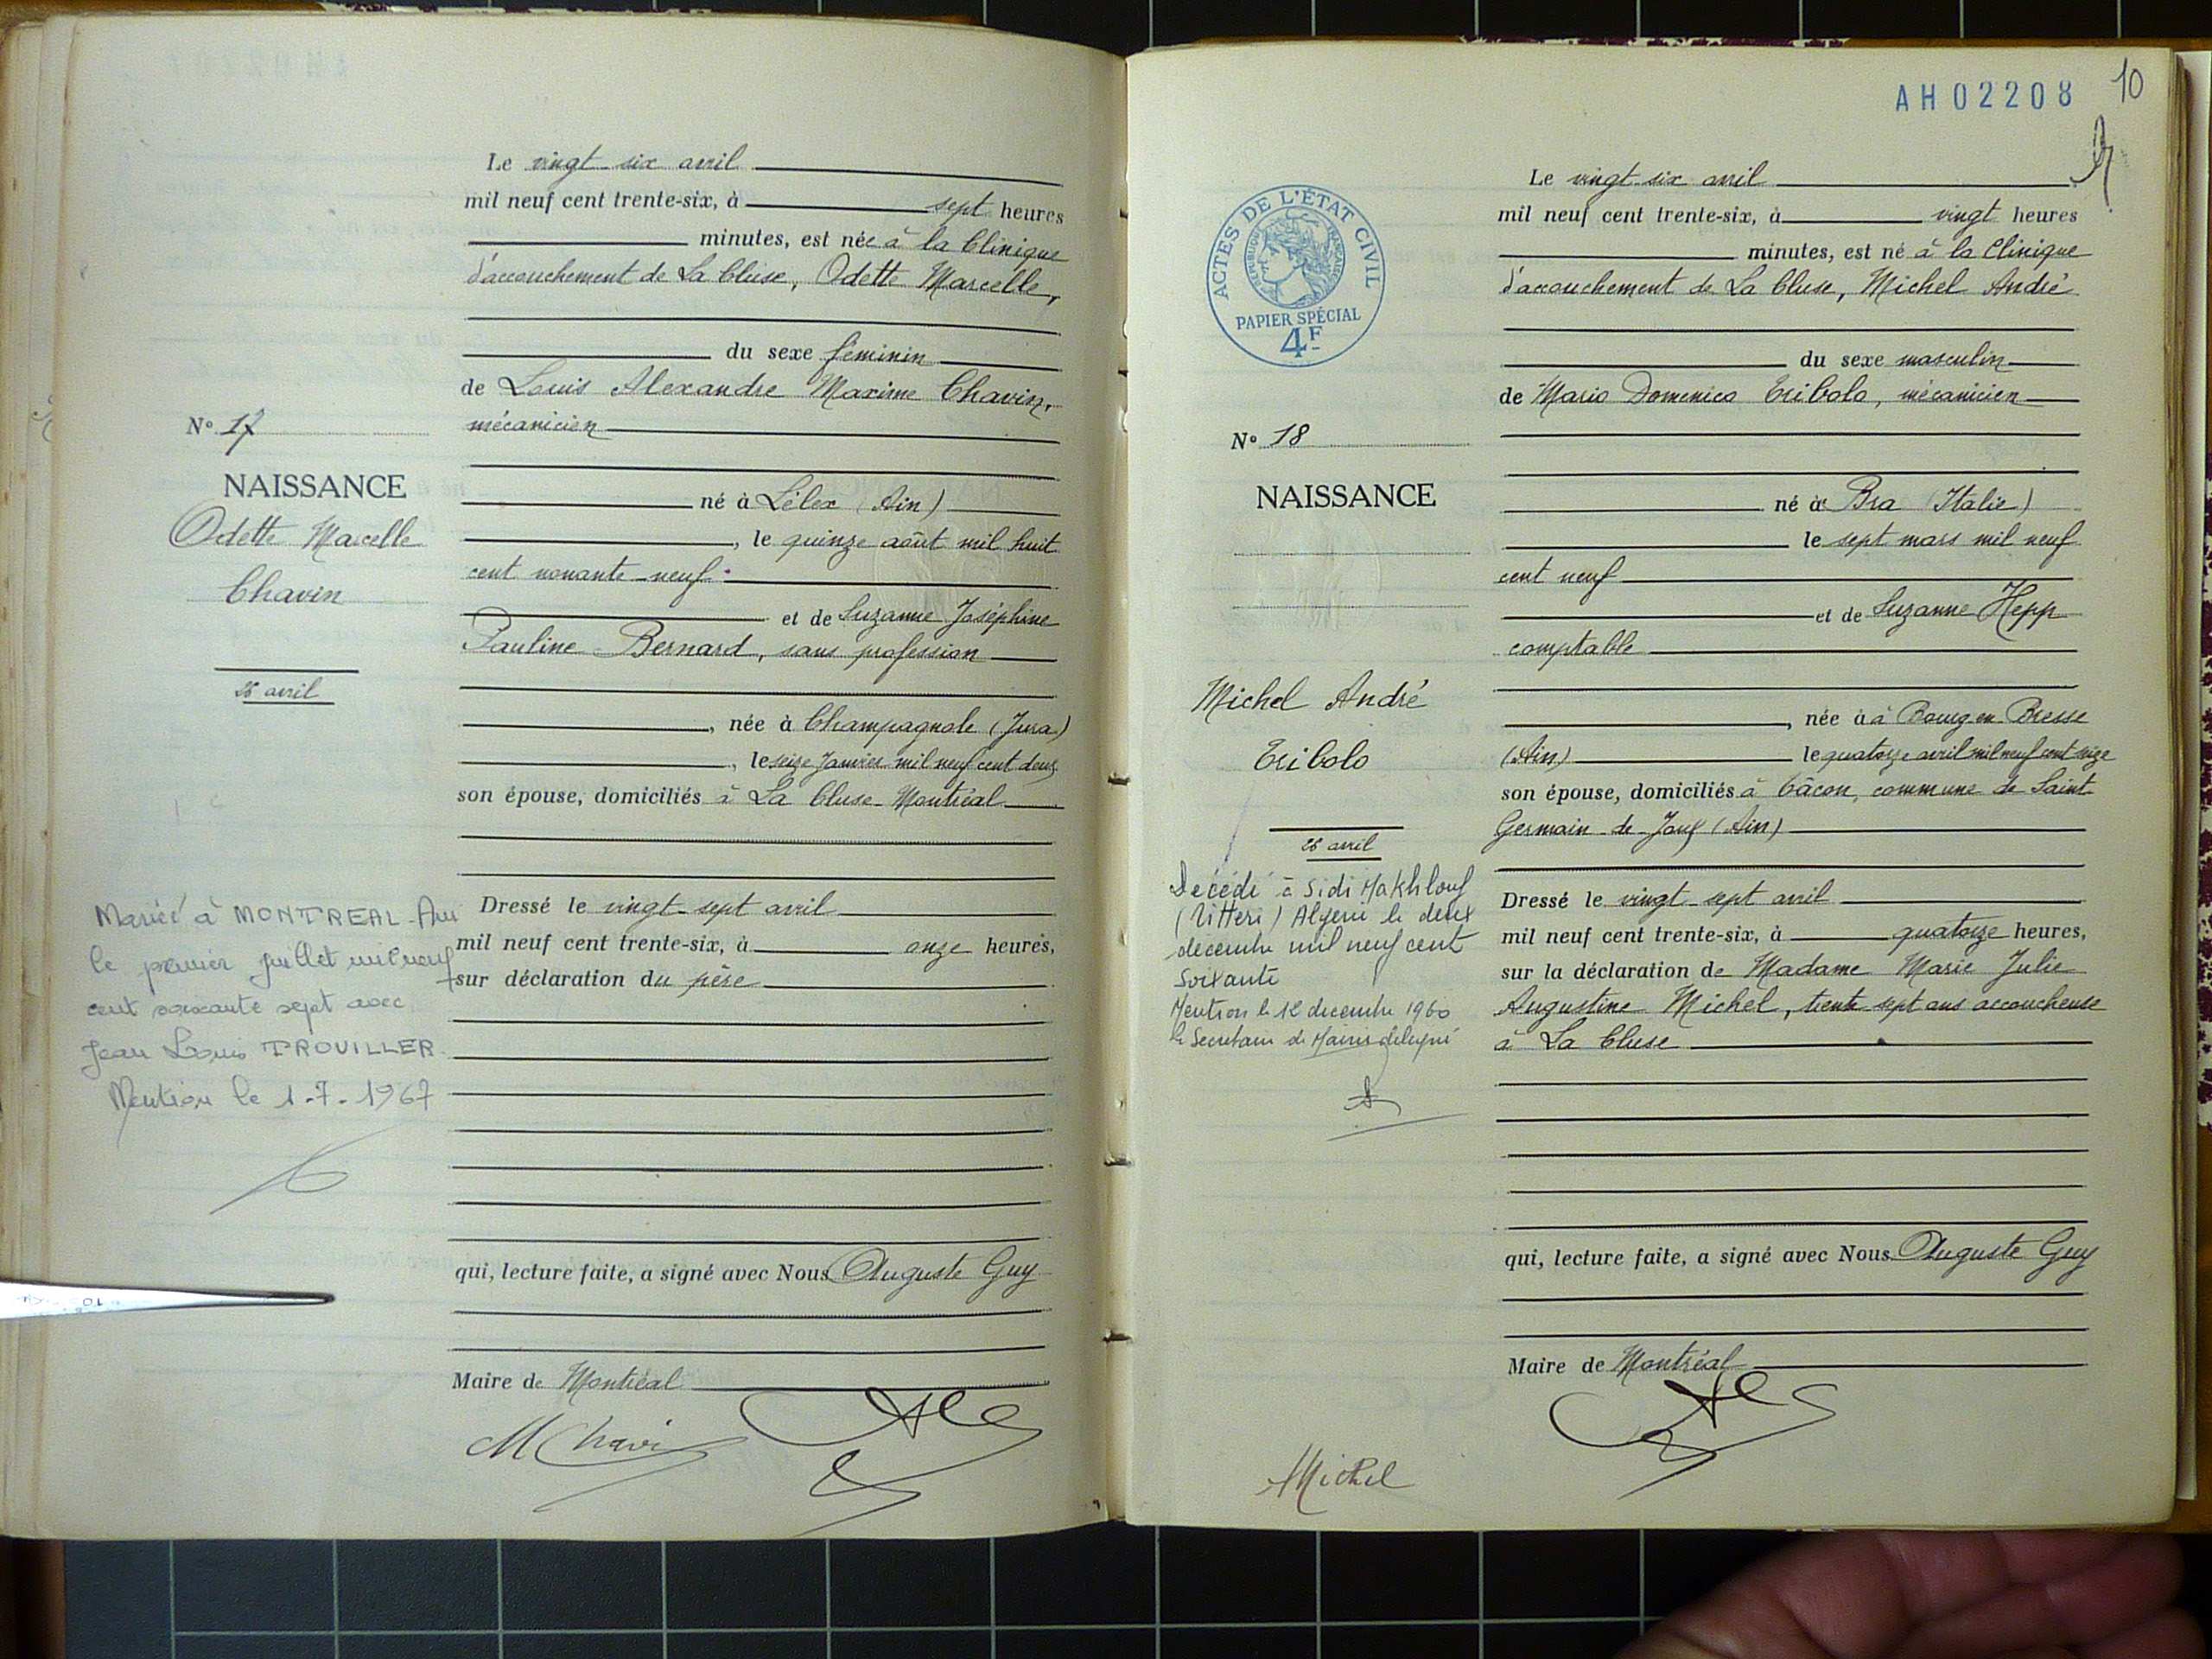 Le vingt six avril
mil neuf cent trente-six, à sept heures
minutes, est née à la Clinique
d'accouchement de La Cluse, Odette Marcelle,
du sexe féminin
de Louis Alexandre Maxime Chavin,
mécanicien
né à Lélex (Ain)
, le quinze août mil huit
cent nonante-neuf
et de Suzanne Joséphine
Pauline Bernard, sans profession
, née à Champagnole (Jura)
, le seize Janvier mil neuf cent deux
son épouse, domiciliés à La Cluse-Montréal
Dressé le vingt-sept avril
mil neuf cent trente-six, à onze heures,
sur déclaration du père
qui, lecture faite, a signé avec Nous Auguste Guy
Maire de Montréal
M Chavin
N° 17
NAISSANCE
Odette Marcelle
Chavin
26 avril
Mariée à MONTREAL-Ain
le premier juillet mil neuf
cent soixante sept avec
Jean Louis TROUILLER
Mention le 1-7-1967
AH02208
10
ACTES DE L'ÉTAT CIVIL
RÉPUBLIQUE FRANÇAISE
PAPIER SPÉCIAL
4F
Le vingt six avril
mil neuf cent trente-six, à vingt heures
minutes, est né à la Clinique
d'accouchement de La Cluse, Michel André
du sexe masculin
de Mario Domenico Tribolo, mécanicien
né à Bra (Italie)
le sept mars mil neuf
cent neuf
et de Suzanne Hepp
comptable
, née à à Bourg en Bresse
(Ain) le quatorze avril mil neuf cent seize
son épouse, domiciliés à Tâcon, commune de Saint
Germain-de-Joux (Ain)
Dressé le vingt-sept avril
mil neuf cent trente-six, à quatorze heures,
sur la déclaration de Madame Marie Julie
Augustine Michel, trente-sept ans accoucheuse
à La Cluse
qui, lecture faite, a signé avec Nous Auguste Guy
Maire de Montréal
AMichel
N° 18
NAISSANCE
Michel André
Tribolo
26 avril
Décédé à Sidi Makhlouf
(Titteri) Algérie le deux
decembre mil neuf cent
soixante
Mention le 12 decembre 1960
le Secretaire de Mairie délégué